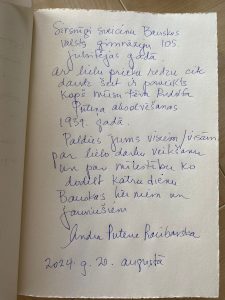 Sirsnīgi sveicinu Bauskas
Valsts ģimnāziju 105
jubilejas gadā
ar lielu prieku redzu cik
daudz šeit ir panākts
kopš mūsu tēva Rūdolfa
Putna absolvēšanas
1939. gadā.
Paldies Jums visiem/visām
par lielo darbu veikšanu
un par mīlestību ko
dodat katru dienu
Bauskas bērniem un
jauniešiem
Andra Putene
2024. g. 20. augustā